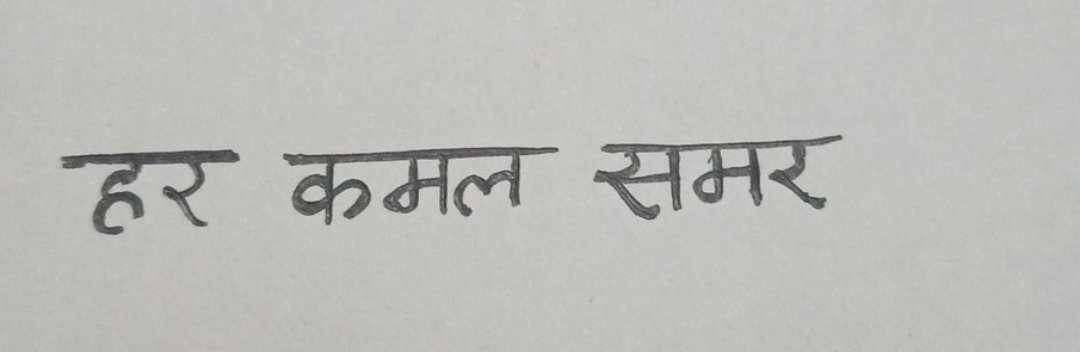 हर कमल समर